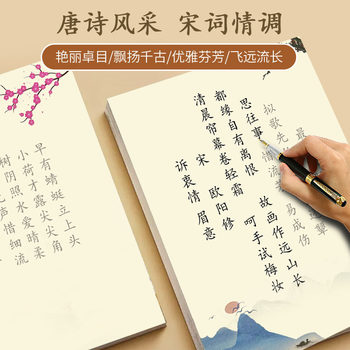 唐诗风采 宋词情调
艳丽卓目/飘扬千古/优雅芬芳/飞远流长
声惜细流
树阴照水爱晴柔
小荷才露尖尖角
早有蜻蜓立上头
诉衷情 眉意
宋 欧阳修
清晨帘幕卷轻霜 呵手试梅妆
都缘自有离恨 故画作远山长
思往事
易成伤
拟歌先